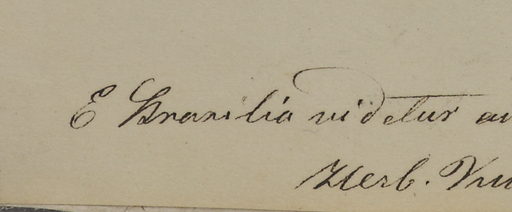 E Brasilia videtur
Herb.